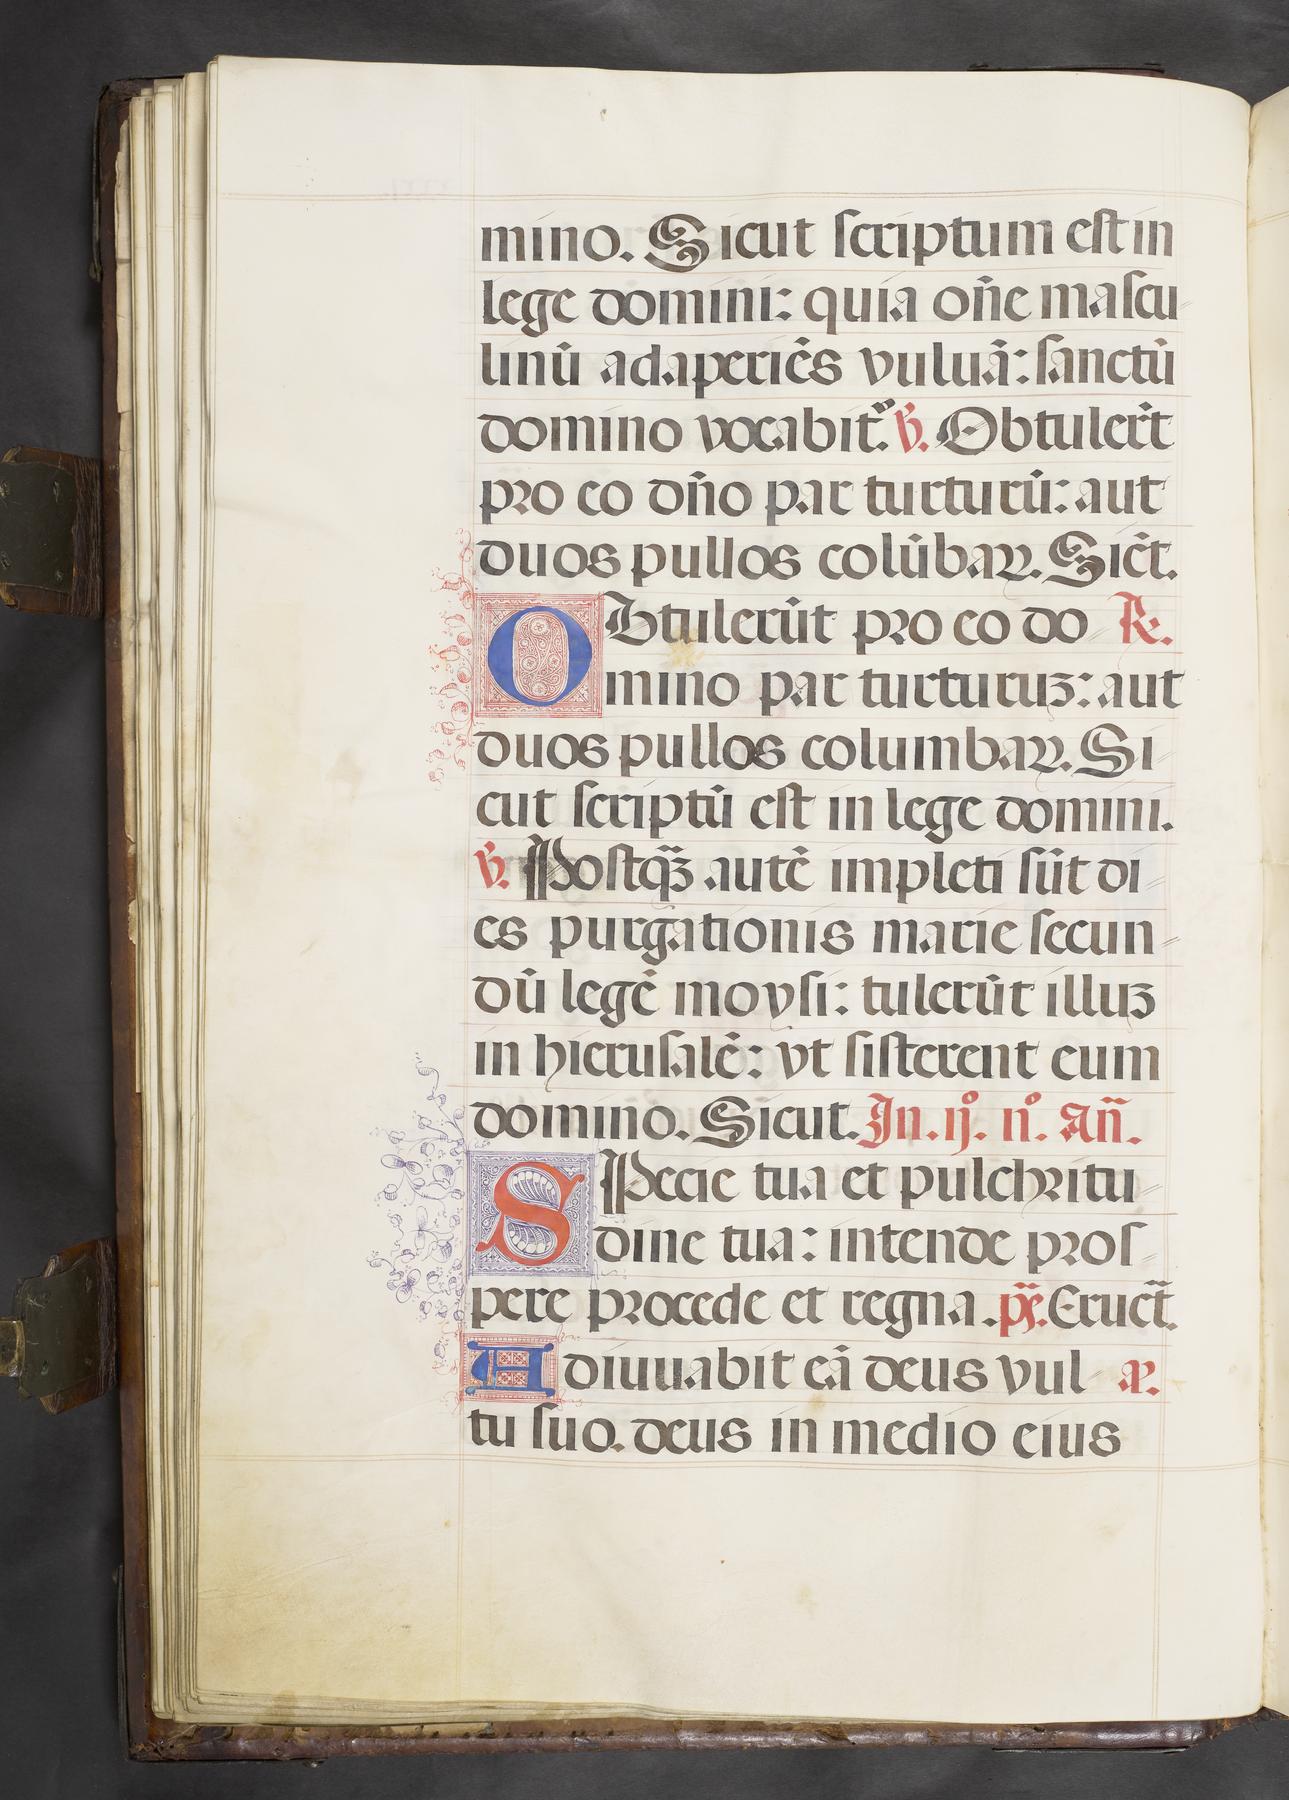 mino. Sicut scriptum est in
lege domini: quia oñe mascu
linū adaperiēs vuluā: sanctū
domino vocabit᷑. ℣. Obtuler̄t
pro eo dño par turturū: aut
duos pullos colūbaꝝ. Sic̄t.
Obtulerūt pro eo do ℟.
mino par turturuꝫ: aut
duos pullos columbaꝝ. Si
cut scriptū est in lege domini.
℣. Postqꝫ̄ autē impleti sūt di
es purgationis marie secun
dū legē moysi: tulerūt illuꝫ
in hierusalē: vt sisterent eum
domino. Sicut. In .ijº. nº. Añ.
SPecie tua et pulchritu
dine tua: intende pros
pere procede et regna. p̄s. Eruct̄.
Adiuuabit eā deus vul aꝝ.
tu suo. deus in medio eius